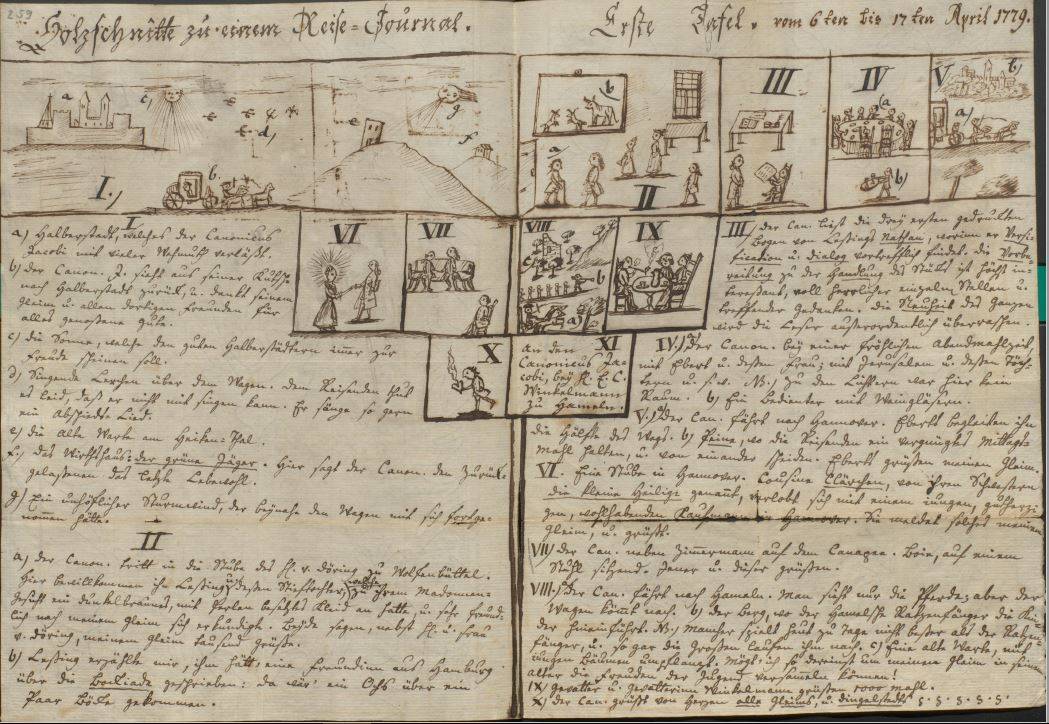 259
Holzschnitte zu einem Reise-Journal.
Erste Tafel. vom 6ten bis 17ten April 1779.
a
c)
d)
b.
I.)
e
g
f
a
b
II
III
IV
a
b)
V
a)
b)
VI
VII
VIII
c
b
a)
IX
X
XI
An den
Canonicus Ja-
cobi, bey H. E. C.
Winkelmann
zu Hameln.
I
a) Halberstadt, welches der Canonikus
Jacobi mit vieler Wehmuth verläßt.
b) der Canon. J. sieht aus seiner Kutsche
nach Halberstadt zurück, u. dankt seinem
Gleim u. allen dortigen Freunden für
alles genossene gute.
c) die Sonne, welche den guten Halberstädtern immer zur
Freude scheinen soll.
d) Singende Lerchen über dem Wagen. dem Reisenden thut
es leid, daß er nicht mit singen kann. Er sänge so gern
ein Abschieds-Lied.
e) die alte Warte am Heiken-Thal.
f.) das Wirthshaus: der grüne Jäger. Hier sagt der Canon. den zurück
gelassenen das letzte Lebewohl.
g) Ein unhöflicher Sturmwind, der beynahe den Wagen mit sich fortge-
nommen hätte.
II
a) der Canon. tritt in die Stube des H. v. Döring zu Wolfenbüttel.
Hier bewillkommen ihn Lessing u. dessen Stieftochter, welche zu ihrem Madonnen-
Gesicht ein dunkelbraunes, mit Perlen besetztes Kleid an hatte, u. sehr freund-
lich nach meinem Gleim sich erkundigte. Beyde sagen, nebst H. u. Frau
v. Döring, meinem Gleim tausend Grüße.
b) Lessing erzählte mir, ihm hätte eine Freundinn aus Hamburg
über die Bockiade geschrieben: da wär' ein Ochs über ein
Paar Böcke gekommen.
III der Can. liest die drey ersten gedruckten
Bogen von Lessings Nathan, worinn er Versi-
fication u. Dialog vortrefflich findet. die Vorbe-
reitung zu der Handlung des Stücks ist höchst in-
teressant, voll herrlicher einzelner Stellen u.
treffender Gedanken; die Neuheit des Ganzen
wird die Leser außerordentlich überraschen.
IV.) der Canon. bey einer fröhlichen Abendmahlzeit,
mit Ebert u. dessen Frau; mit Jerusalem u. dessen Töch-
tern u. s. w. NB.) Zu den Lichtern war hier kein
Raum. b) Ein Bedienter mit Weingläsern.
V.) der Can. fährt nach Hannover. Eberts begleiten ihn
die Hälfte des Wegs. b) Peine, wo die Reisenden ein vergnügtes Mittags-
mahl halten, u. von einander scheiden. Eberts grüßen meinen Gleim.
VI. Eine Stube in Hannover. Cousine Clärchen, von ihren Schwestern
die kleine Heilige genannt, verlobt sich mit einem jungen, gutherzi-
gen, wohlhabenden Kaufmann in Hannover. Sie meldet solches meinem
Gleim, u. grüßt.
VII) der Can. neben Zimmermann auf dem Canapee. Boie, auf einem
Stuhl sitzend. Jener u. dieser grüßen.
VIII.) der Can. fährt nach Hameln. Man sieht nur die Pferde, aber der
Wagen kömmt nach. b) der Berg, wo der Hamelsche Ratzenfänger die Kin-
der hineinführt. NB.) Mancher spielt heut zu Tage nicht besser als der Ratzen-
fänger, u. so gar die Großen laufen ihm nach. c) Eine alte Warte, mit
jungen Bäumen umpflanzt. Mögt' ich so dereinst um meinen Gleim in seinem
Alter die Freuden der Jugend versammeln können!
IX) Gevatter u. Gevatterinn Winkelmann grüßen 1000 mahl.
X) der Can. grüßt von Herzen alle Gleims, u. Dingelstedts